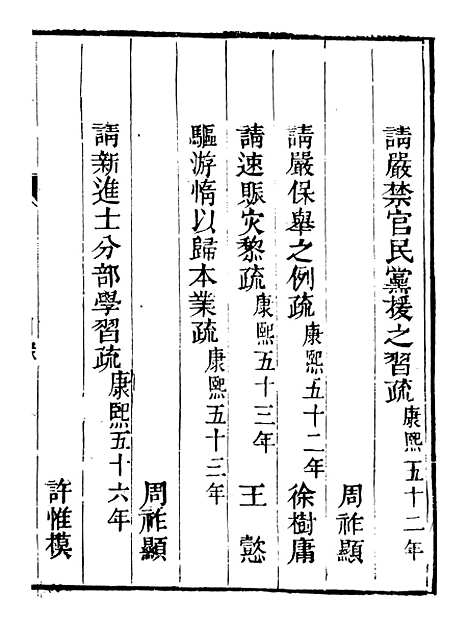 請嚴禁官民黨援之習疏康熙五十二年
周祚顯
請嚴保舉之例疏康熙五十二年 徐樹庸
請速賑灾黎疏康熙五十三年 王懿
驅游惰以歸本業疏康熙五十三年
周祚顯
請新進士分部學習疏康熙五十六年
許惟模